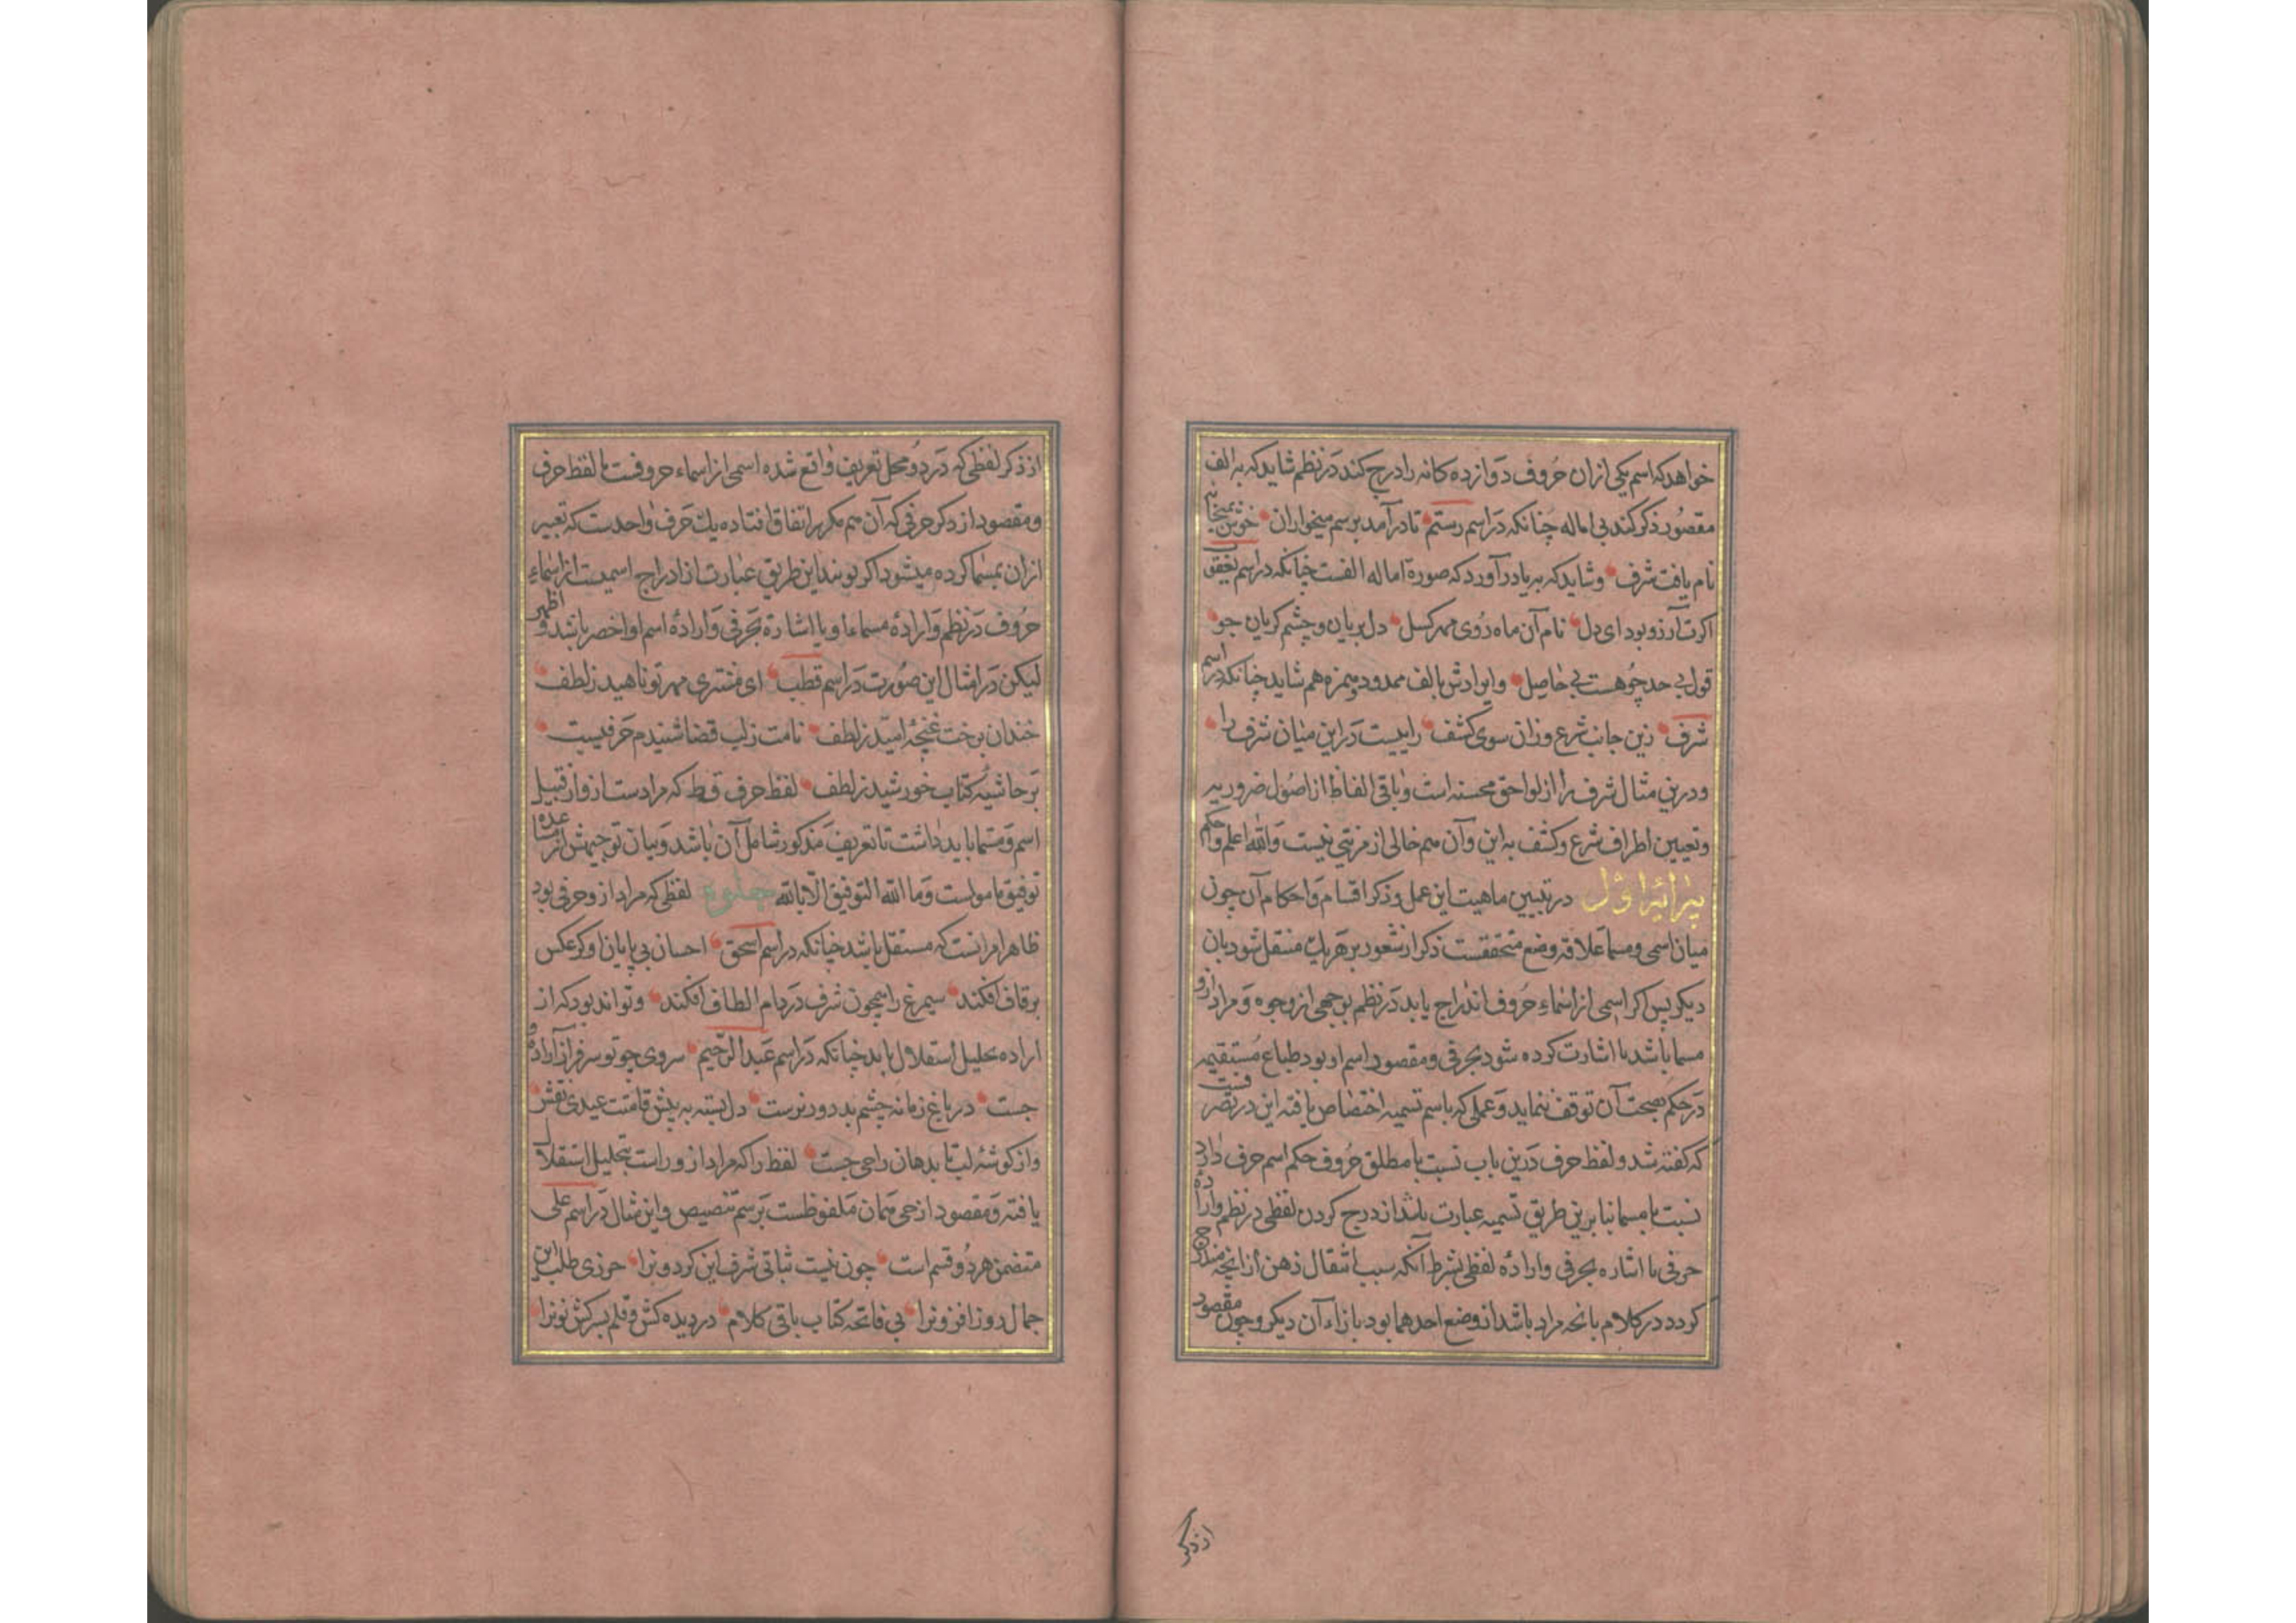 خواهد که اسم یکی ازان حروف دوازده کانه را درج کند در نظم شاید که به الف
مقصور ذکر کند بی اماله چنانکه در اسم رستم تا در آمد برسم میخواران خوش بمیخانه
نام یافت شرف وشاید که به یا درآورد که صورة اماله الفست چنانکه در اسم یعقوب
اکرت آرزو بود ای دل نام آن ماه روی مهر کسل دل بریان وچشم کریان جو
قول بی حد چو هست بی حاصل وایرادش بالف ممدود وهمزه هم شاید چنانکه در اسم
شرف زین جانب شرع وزان سوی کشف راییست در این میان شرف را
ودرین مثال شرف را از لواحق محسنه است وباقی الفاظ از اصول ضروریه
وتعیین اطراف شرع وکشف به این وآن هم خالی از مزیتی نیست والله اعلم واحکم
پیرایۀ اول در تبیین ماهیت این عمل وذکر اقسام واحکام آن چون
میان اسمی ومسما علاقه وضع متحققست ذکر از شعور بر هر یک منتقل شود بان
دیکر پس اکر اسمی از اسماء حروف اندراج یابد در نظم بوجهی از وجوه ومراد ازو
مسما باشد یا اشارت کرده شود بحرفی ومقصود اسم او بود طباع مستقیمه
در حکم بصحت آن توقف ننماید وعملی که باسم تسمیه اختصاص یافته این در تصرفست
که کفته شد ولفظ حرف درین باب نسبت با مطلق حروف حکم اسم حرف دارد
نسبت با مسما بنا برین طریق تسمیه عبارت باشد از درج کردن لفظی در نظم وارادۀ
حرفی یا اشاره بحرفی وارادۀ لفظی بشرط آنکه سبب انتقال ذهن از آنچه مندرج
کردد در کلام بانچه مراد باشد از وضع احدهما بود بازاء آن دیکر وچون مقصود
از ذکر
از ذکر لفظی که در دو محل تعریف واقع شده اسمی از اسماء حروفست یا لفظ حرف
ومقصود از ذکر حرفی که آن هم مکرر اتفاق افتاده یک حرف واحدست که تعبیر
ازان بمسما کرده میشود اکر بویند این طریق عبارت از ادراج اسمیست از اسماء
حروف در نظم وارادۀ مسماء او یا اشارة بحرفی وارادۀ اسم او اخصر باشد واظهر
لیکن در امثال این صورت در اسم قطب ای مشتری مهر تو ناهید ز لطف
خندان برخت غنچۀ امید ز لطف نامت ز لب قضا شنیدم حرفیست
بر حاشیۀ کتاب خورشید ز لطف لفظ حرف قط که مرادست ازو از قبیل
اسم ومسما باید داشت تا تعریف مذکور شامل آن باشد وبیان توجیهش از مساعده
توفیق مامولست وما الله التوفیق الا بالله لفظی که مراد ازو حرفی بود
ظاهر امر انست که مستقل باشد چنانکه در اسم اسحق احسان بی پایان او کر عکس
بر قاف افکند سیمرغ را همچون شرف در دام الطاف افکند وتواند بود که از
اراده تحلیل استقلال یابد چنانکه در اسم عبد الرحیم سروی چو تو سرفراز آزاده و
جست در باغ زمانه چشم بد دور نرست دل بسته به پیش قامتت عیدی نقش
واز کوشۀ لب تا بدهان راحی جست لفظ را که مراد ازو راست بتحلیل استقلال
یافته ومقصود از حی همان ملفوظست بر سم تنصیص واین مثال در اسم علی
متضمن هر دو قسم است چون نیست ثباتی شرف این کرد وبرا حرزی طلب این
جمال روز افزونرا بی فاتحه کتاب باقی کلام در دیده کش وقلم بسرکش نونرا